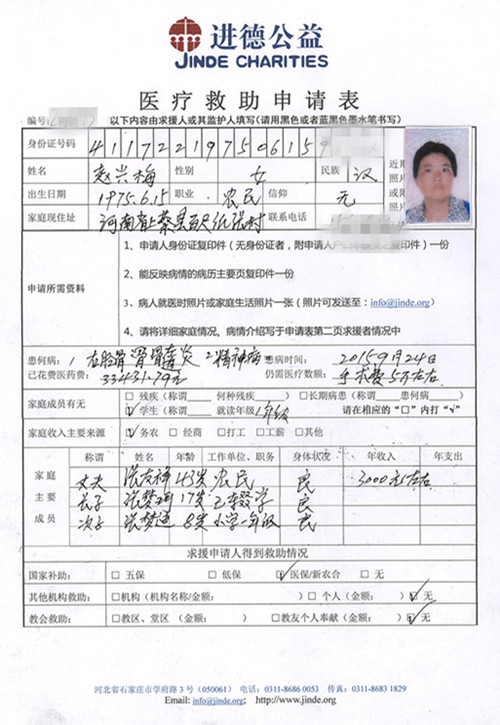 进德公益
JINDE CHARITIES
医疗救助申请表
编号: 以下内容由求援人或其监护人填写(请用黑色或者蓝黑色墨水笔书写)
身份证号码 41172219750615 近期
姓名 赵兴梅 性别 女 民族 汉 照
出生日期 1975.6.15 职业 农民 信仰 无 片
家庭现住址 河南省上蔡县百尺纸张村 联系电话
1、申请人身份证复印件(无身份证者,附申请人户口本复印件)一份
2、能反映病情的病历主要页复印件一份
申请所需资料
3、病人就医时照片或家庭生活照片一张(照片可发送至:info@jinde.org)
4、请将详细家庭情况、病情介绍写于申请表第二页求援者情况中
患何病: 1 左胫骨骨髓炎 2 精神病 患病时间: 2015 9月24日
已花费医药费: 33431.79元 仍需医疗数额: 手术费5万左右
家庭成员有无 □残疾(称谓 何种残疾) □长期患病(称谓 患何病)
☑学生(称谓 就读年级1年级 请在相应的“□”内打“√”
家庭收入主要来源 ☑务农 □经商 □打工 □工薪 □其他
称谓 姓名 年龄 工作单位、职务 身体状况 年收入 年支出
家庭 丈夫 张友 43岁 农民 3000元左右
主要 长子 张梦 17岁 已辍学
成员 次子 张梦 8岁 小学一年级
求援申请人得到救助情况
国家补助: □五保 □低保 ☑医保/新农合 □无
其他机构救助: □机构(机构名称/金额: ) □个人(金额: ) ☑无
教会救助: □教区、堂区(金额: ) □教友个人奉献(金额: ) ☑无
河北省石家庄市学府路3号(050061) 电话:0311-8686 0053 传真:0311-8683 1829
Email: info@jinde.org http://www.jinde.org